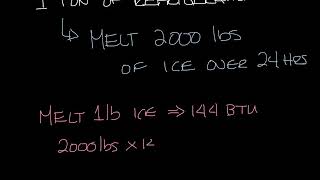 1 TON OF
↳ MELT 2000 lbs
OF ICE OVER 24 HRS
MELT 1lb ICE ⇒ 144 BTU
2000 lbs x 12